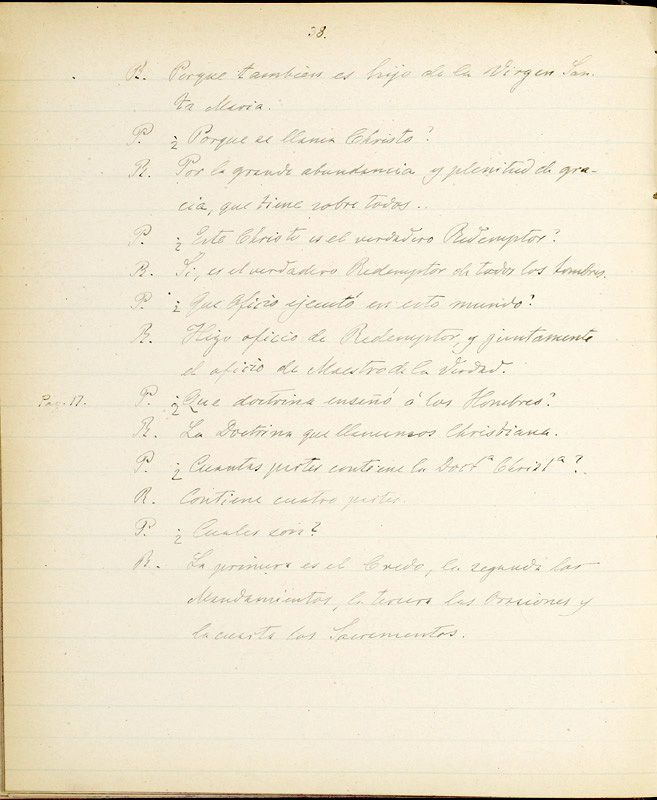 38.
R. Porque tambien es hijo de la Virgen San-
ta Maria.
P. ¿Porque se llama Christo?
R. Por la grande abundancia y plenitud de gra-
cia, que tiene sobre todos..
P. ¿Este Christo es el verdadero Redemptor?
R. Si, es el verdadero Redemptor de todos los hombres.
P. ¿Que oficio ejecutó en este mundo?
R. Hizo oficio de Redemptor, y juntamente
el oficio de Maestro de la Verdad.
Pag. 17. P. ¿Que doctrina enseñó á los Hombres?
R. La Doctrina que llamamos Christiana.
P. ¿Cuantas partes contiene la Doctª Christª?
R. Contiene cuatro partes.
P. ¿Cuales son?
R. La primera es el Credo, la segunda los
Mandamientos, la tercera las Oraciones y
la cuarta los Sacramentos.